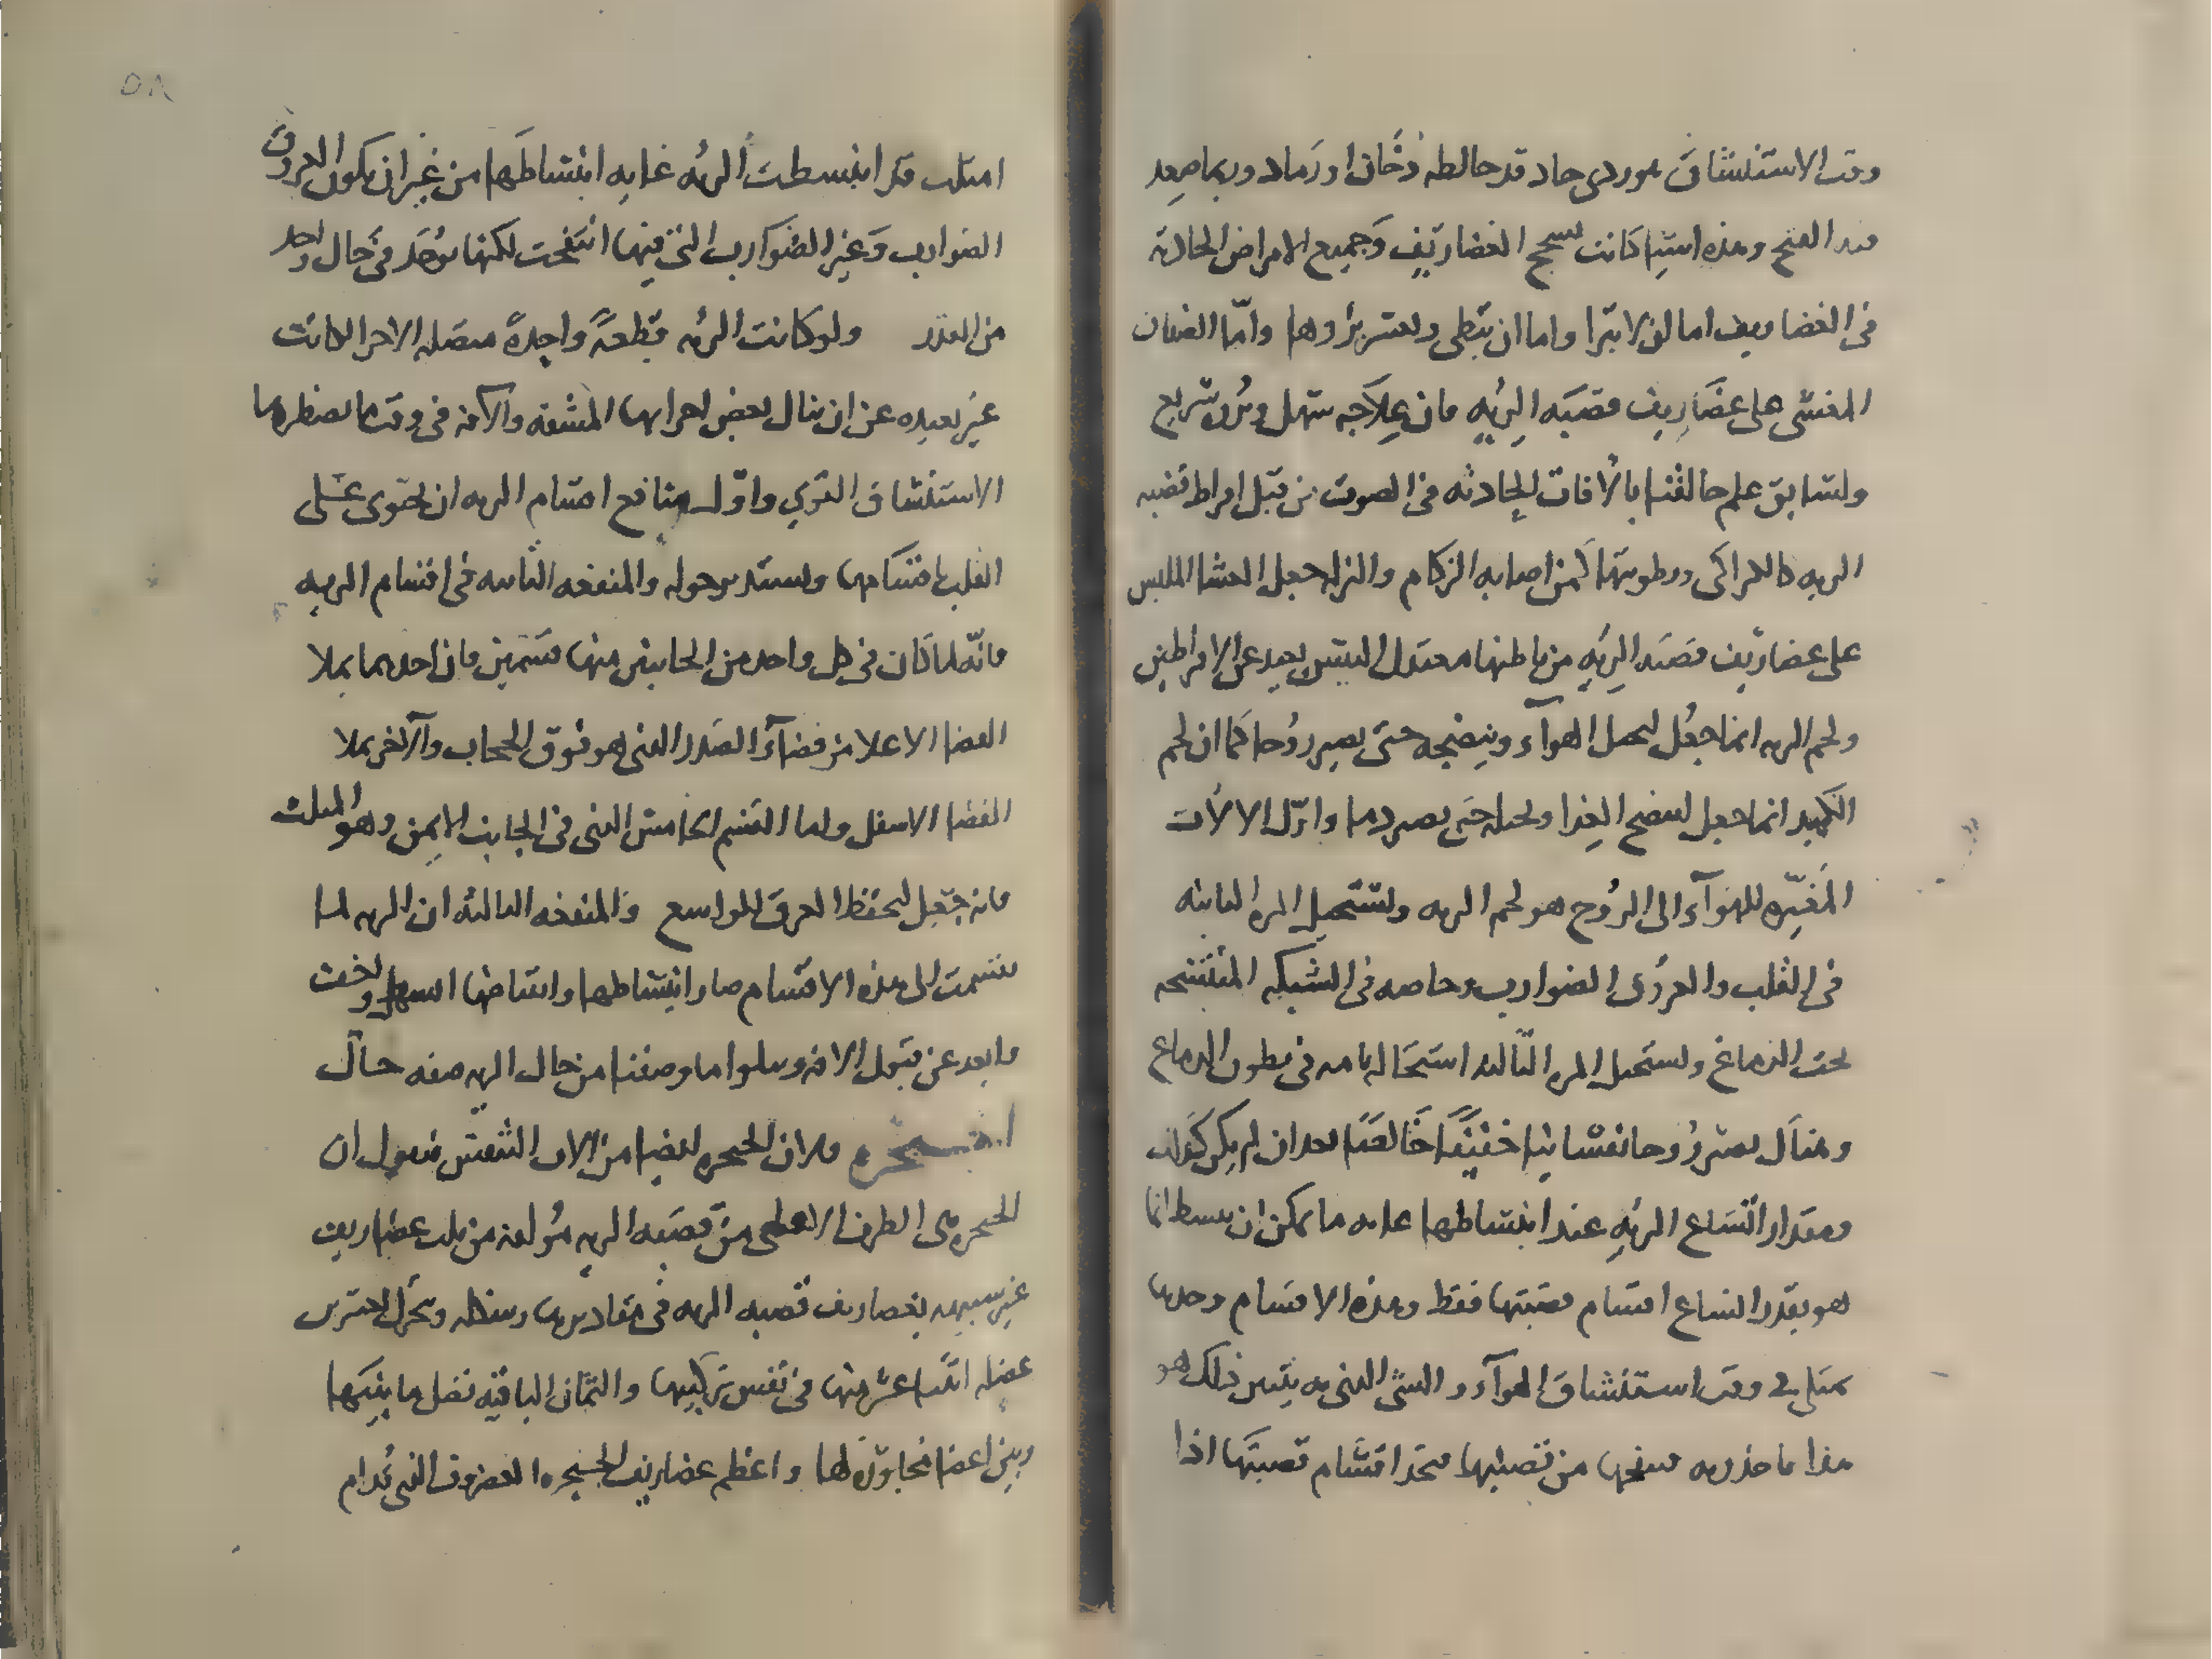 وقت الاستنشاق موردى حاد قد خالطه دُخان او رَماد وربما صعد
القيح وهذه اشيا كانت تسحج الغضاريف وَجميع الامراض الحادثه
فى الغضاريف اما ان لا تبرا واما ان تبطى ويعسر بُرؤها وامّا الغشا
المغشى على غضَاريف قصبَه الرئه فان عِلاَجه سَهل وبُرؤه سَريع
ولسَابق علم خالقنا بالافات الحادثه فى الصوت من قبل افراط قصبه
الريه كالكراكى ورطوبتها كمن اصابه الزكام والنزله جعل الغشا الملبس
على غضاريف قصبَه الرِئهِ من باطنها معتدل اليبس بعيد عن الافراطين
ولحم الريه انما جعُل ليحيل الهوآء وينضجه حتى يصير رُوحا كَما ان لحم
الكَبِد انما جعل لينضج الغِذا ويحيله حتى يصير دما واوّل الالات
المُغيّره للهَوآء الى الرُوح هو لحم الريه وتستحيل المره الثانيه
فى القلب والعروُق الضوارب وخاصه فى الشبكه المنتسجه
تحت الدماغ وتستحيل المره الثالثه استحاله تامه فى بطون الدماغ
وهناَك يصير رُوحا نفسَانيا خفيفًا خَالصًا بعد ان لم يكن كذلك
ومقدار اتّسَاع الرئهِ عند انبسَاطها غايه ما يمكن ان تنبسط انما
هو بقدر اتساع اقسَام قصبَتها فقط وهذه الاقسَام وحدها
تمتلى فى وقت استنشاق الهوآء والشئ الذى به يتبين ذلك هو
هذا ما خذ ريه فنفخها من قصبتها فتجد اقسَام قصبتَها اذا
امتلت قد انبسطت الرئه غايه انبسَاطَها من غير ان تكون العروق
الضوارب وَغير الضَوارب التى فيها انتفخت لكنها توُجَد فى حَال واحد
من القدر ولو كانت الرئه قطعةً واحِدةً متصله الاجزا لكانت
غير بعيده عن ان ينال بعض اجزايها المشقه والآفه فى وقت ما يضطرها
الاستنشاق القوي واوّل منافع اقسَام الريه ان تحتوى عَلى
القلب باقسَامها وتستدير حوله والمنفعه الثانيه فى اقسَام الريه
فانّه لما كَان فى كل واحد من الجانبين منها قسَمين فان احدهما يملا
الفضا الاعلا من فضآء الصَدر الذى هو فوق الحجاب والآخر يملا
الفضا الاسفل واما القسَم الخامس الذى فى الجانب الايمن وهو الثالث
فانه جُعِل ليحفظ العرق الواسع والمنفعه الثالثه ان الريه لما
قسمت الى هذه الاقسَام صار انبسَاطها وانقباضها اسهل واخف
وابعد عن قبول الافه ويتلوا ما وصفنا من حال الريه صفه حال
الحنجره ولان الحنجره ايضا من الات التنفس فنقول ان
الحنجره هى الطرف الاعلى من قصبَه الريه مُولفه من ثلث غضاريف
غير شبيهه بغضاريف قصبه الريه فى مقاديرها وشكلها ويحركها عشرين
عضله اثنَتا عشر منها فى نفس تركيبها والثمَان الباقيه تصل ما بينها
وبين اعضا مجاوِره لها واعظم غضاريف الحنجره الغضروف الذى قدام